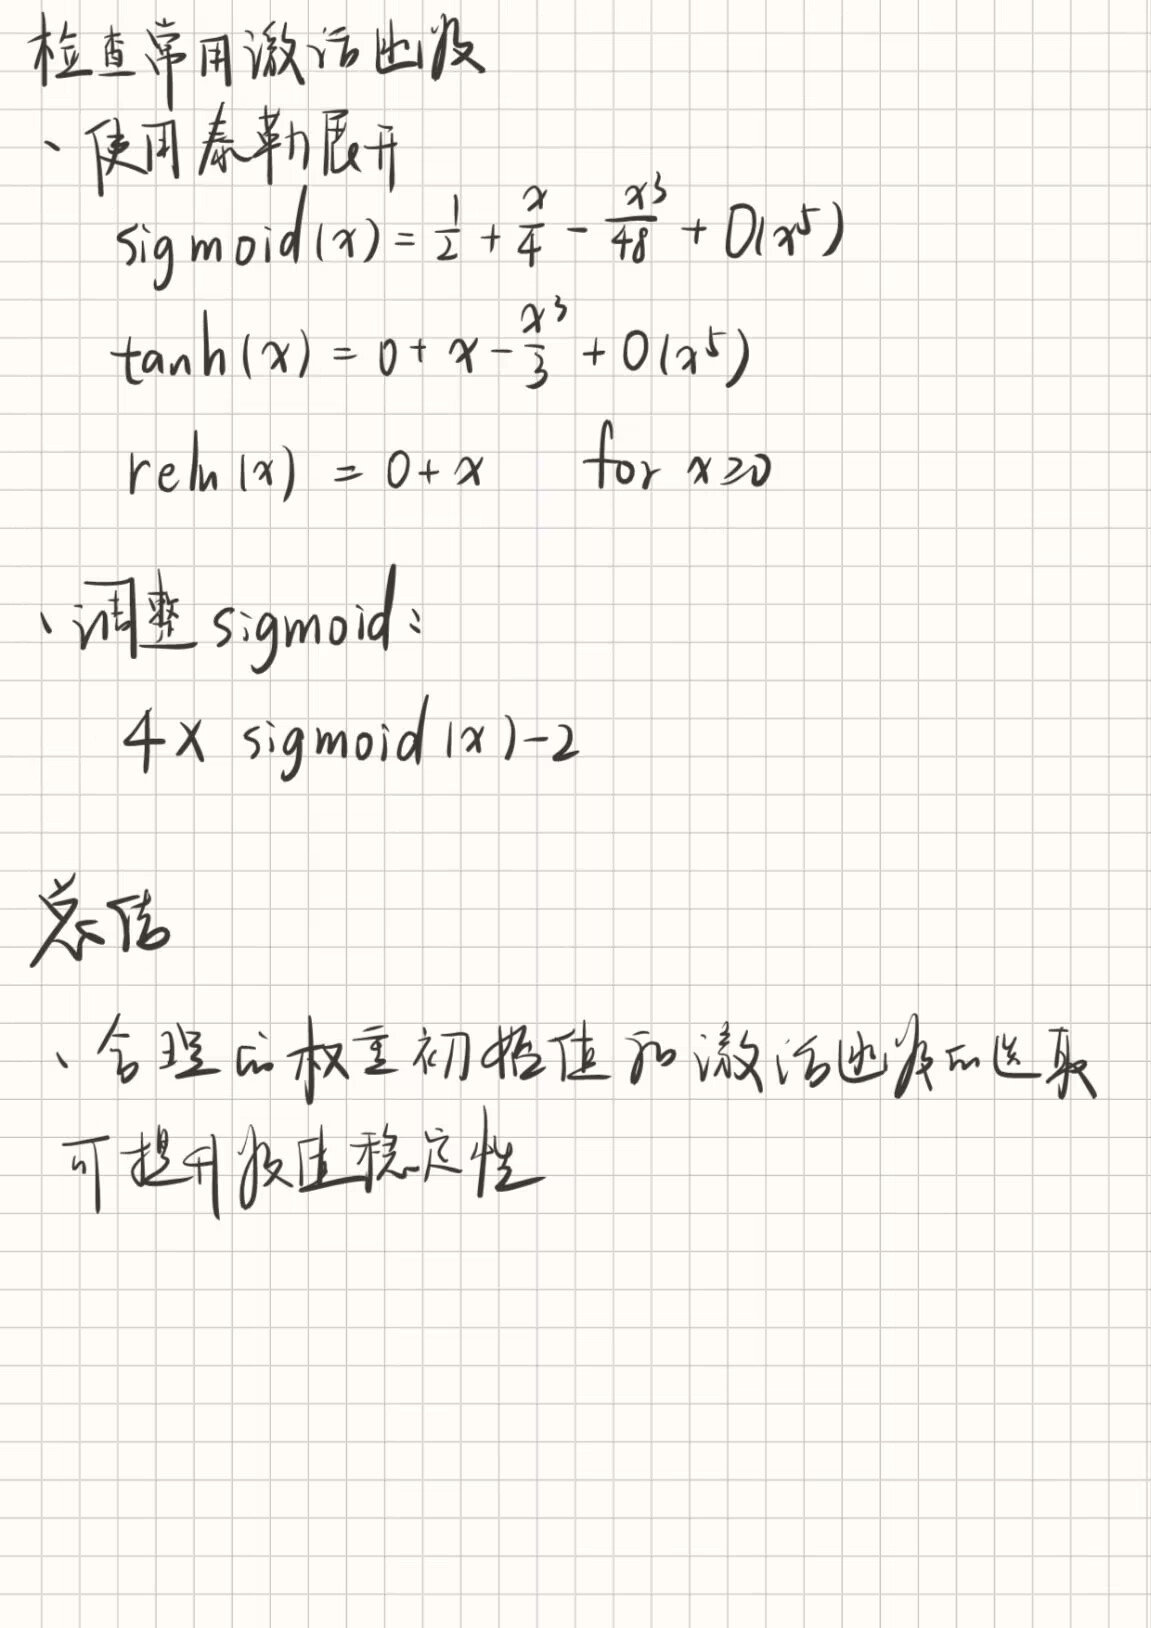 检查常用激活函数
、使用泰勒展开
sigmoid(x) = 1/2 + x/4 - x³/48 + O(x⁵)
tanh(x) = 0 + x - x³/3 + O(x⁵)
relu(x) = 0 + x for x≥0
、调整sigmoid:
4× sigmoid(x)-2
总结
、合理的权重初始值和激活函数的选取
可提升数值稳定性